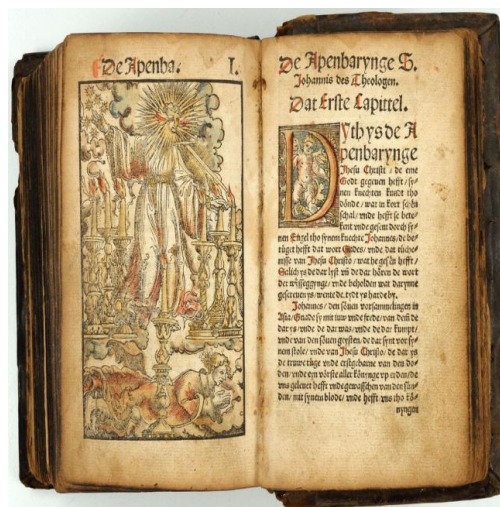 De Apenba.
I.
De Apenbarynge S.
Johannis des Theologen.
Dat Erste Capittel.
Dyth ys de A
penbarynge
Jhesu Christi / de eme
Godt gegeuen hefft / sy-
nen knechten kundt tho
dönde / wat in kort schen
schal / vnde hefft se bete-
kent vnde gesant dorch sy-
nen Engel tho synem knechte Johannes / de be-
tüget hefft dat wort Gades / vnde dat tüche-
nisse van Jhesu Christo / wat he geseen hefft /
Salich ys de dar lyst vn de dar hören de wort
der wyssegginge / vnde beholden wat darynne
gescreuen ys / wente de tydt ys harde by.
Johannes / den söuen vorsammelingen in
Asia / Gnade sy mit juw vnde frede / van dem de
dar ys / vnde de dar was / vnde de dar kumpt /
vnde van den söuen geysten / de dar synt vor sy-
nem stole / vnde van Jhesu Christo / de dar ys
de truwe tüge vnde erstgebarne van den do-
den / vnde eyn vörste aller könynge vp erden / de
vns geleuet hefft vnde gewasschen van den sün-
den / mit synem blode / vnde hefft vns tho kö-
nyngen